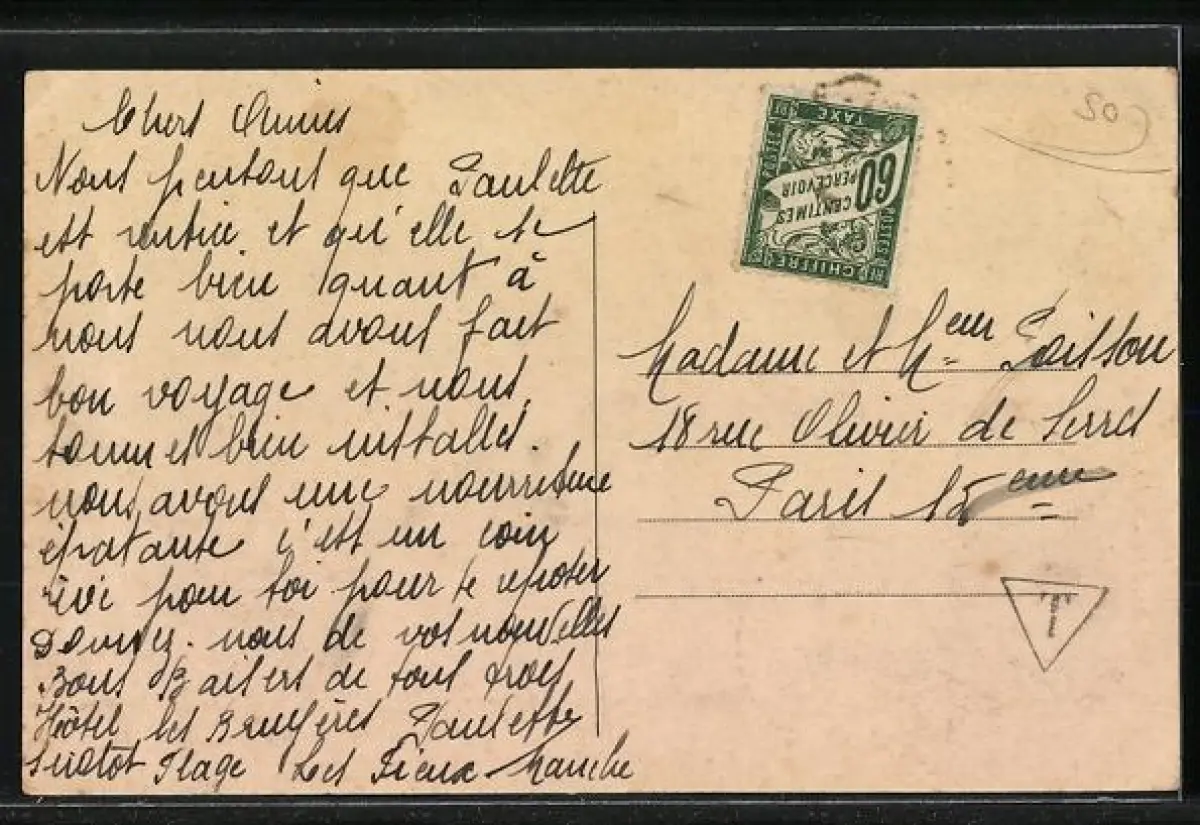 Chers Amis
Nous pensons que Paulette
est rentrée et qu'elle se
porte bien quant à
nous nous avons fait
bon voyage et nous
sommes bien installés.
nous avons une nourriture
épatante c'est un coin
rêvé pour toi pour te reposer
Donnez-nous de vos nouvelles
Bons Baisers de tous trois
Hôtel des Bruyères Paulette
Sciotot Plage Les Pieux Manche
50
TAXE
POSTES
60
CENTIMES
PERCEVOIR
POSTES
CHIFFRE
Madame et Mr Poisson
18 rue Olivier de Serres
Paris 15eme
T